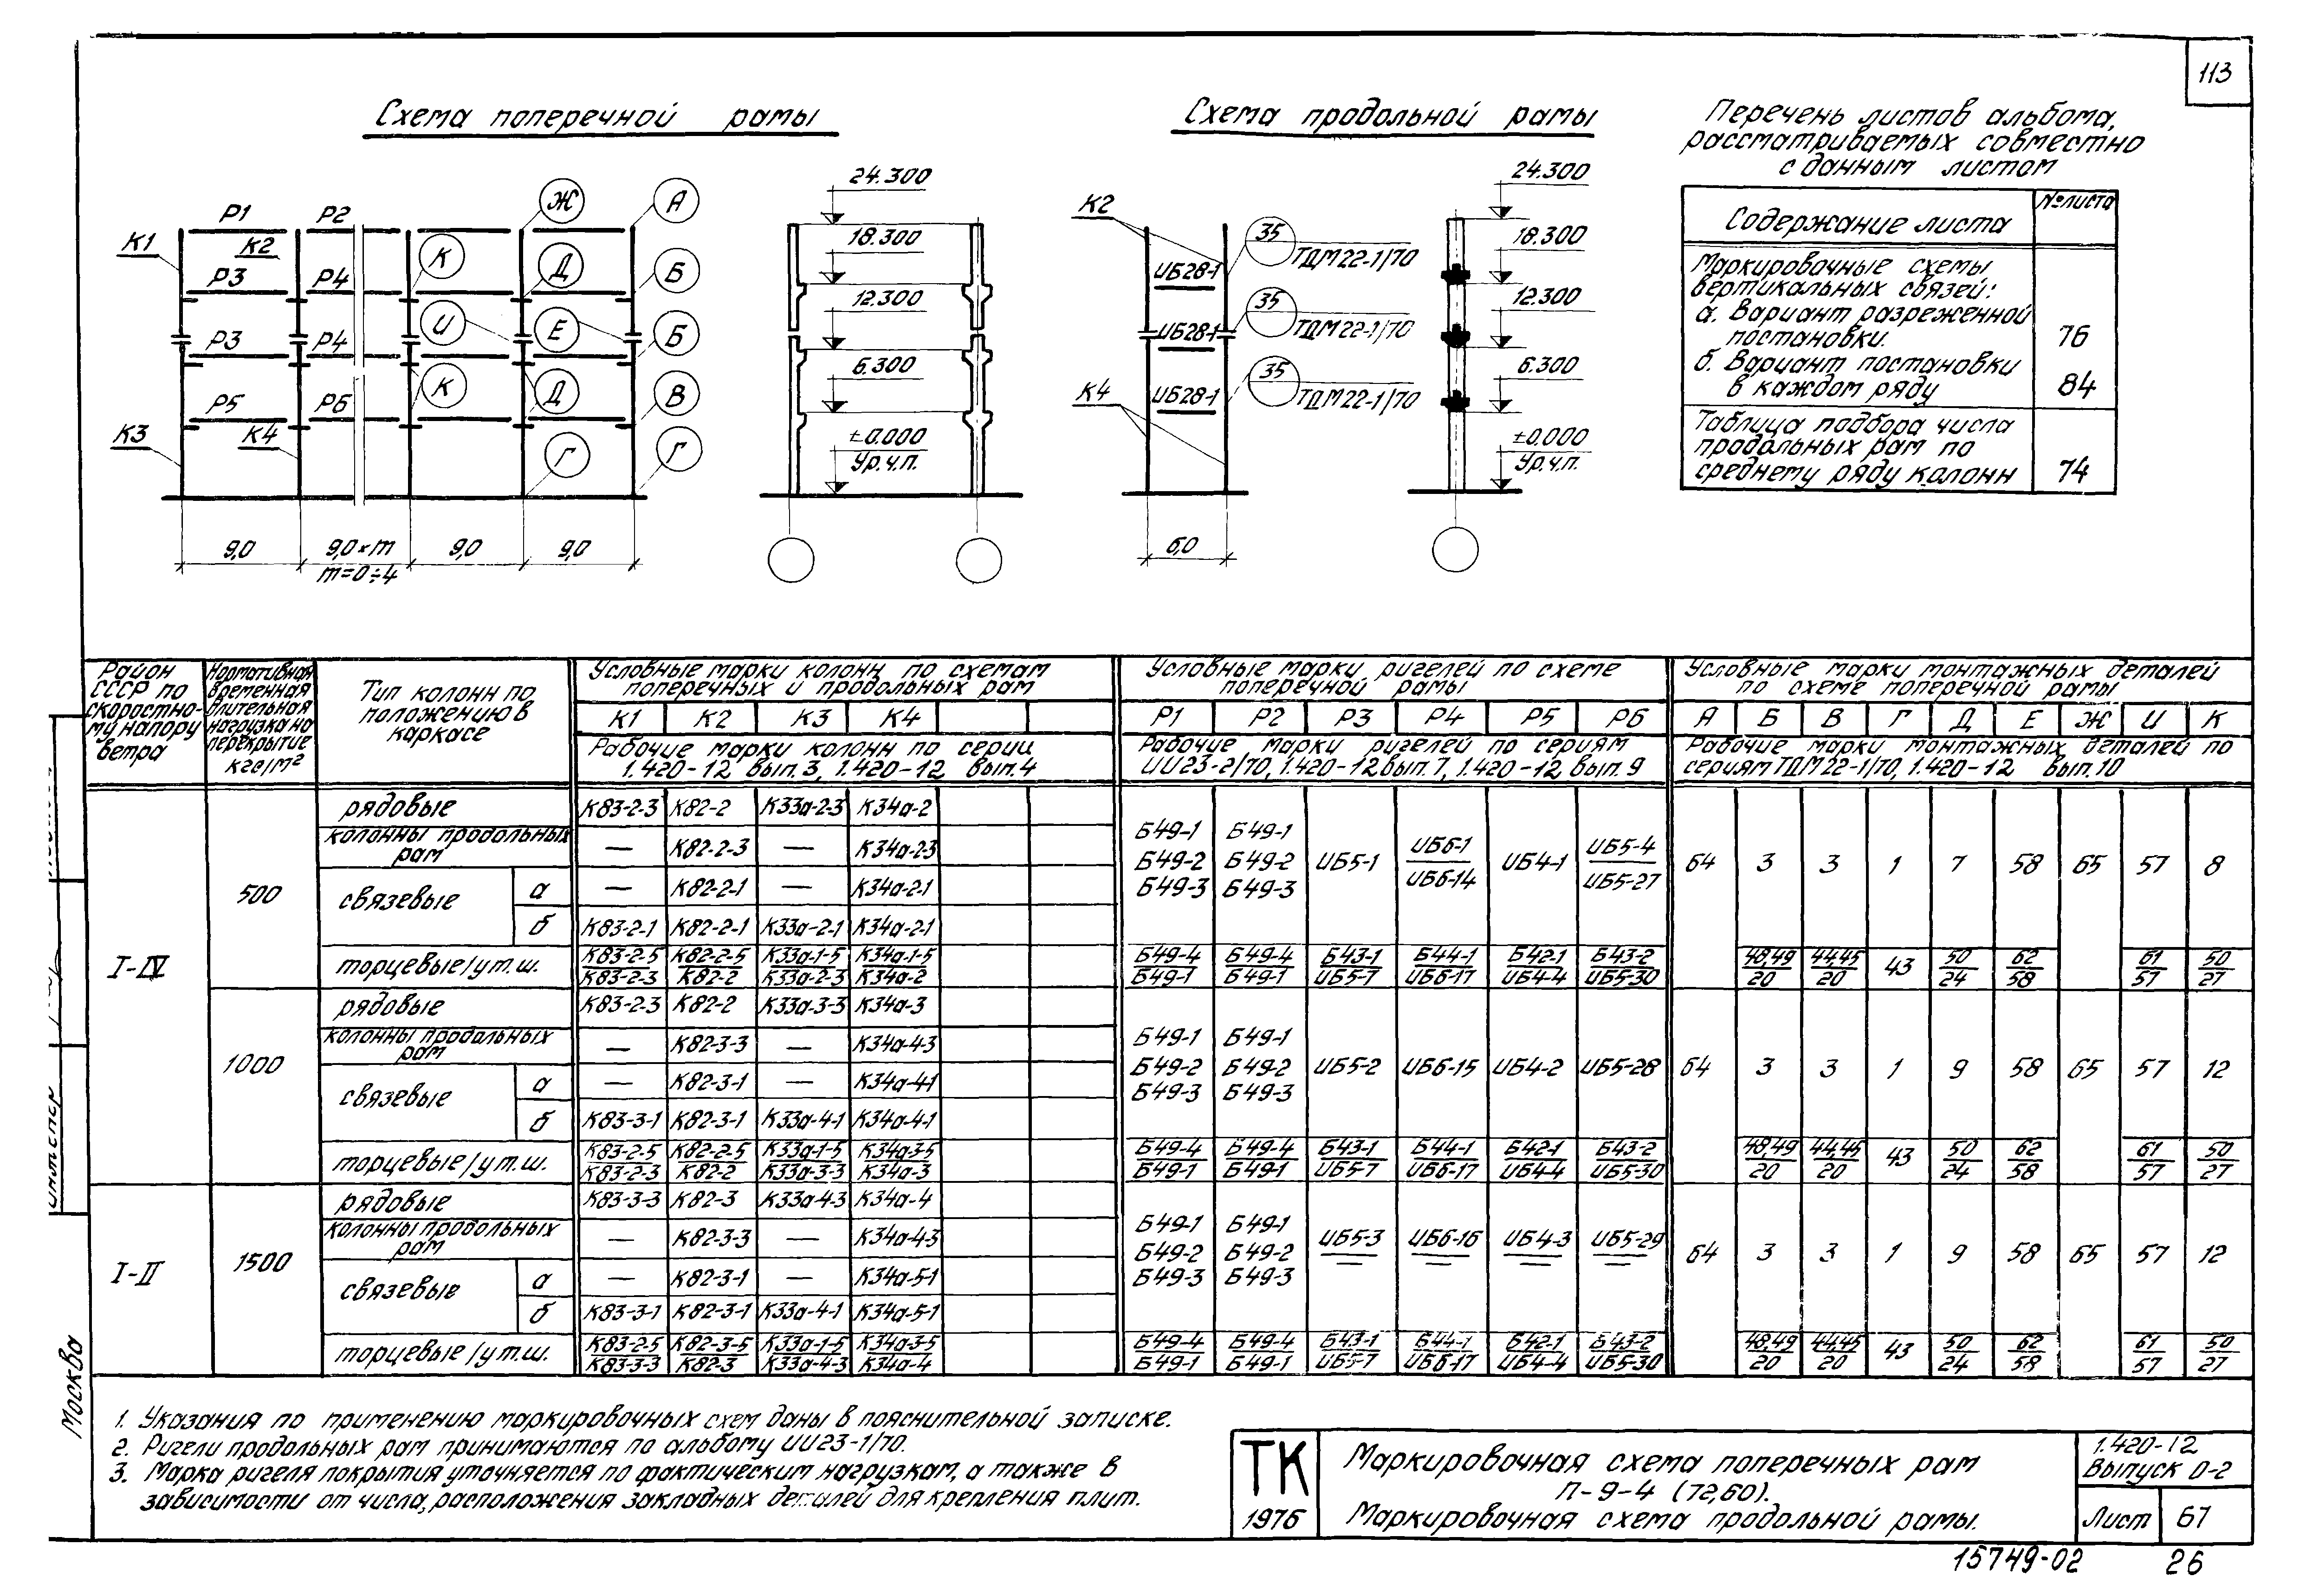 113
Схема поперечной рамы
Схема продольной рамы
Перечень листов альбома,
рассматриваемых совместно
с данным листом
Содержание листа
№листа
Маркировочные схемы
вертикальных связей:
а. Вариант разреженной
постановки.
76
б. Вариант постановки
в каждом ряду
84
Таблица подбора числа
продольных рам по
среднему ряду колонн
74
К1 Р1 К2 Р2 Ж А
Р3 Р4 К Д Б
Р3 Р4 И Е Б
Р5 Р6 К Д В
К3 К4 Г Г
9,0 9,0×m 9,0 9,0
m=0÷4
24.300
18.300
12.300
6.300
±0.000
Ур.ч.п.
К2
ИБ28-1 35 ТДМ22-1/70
ИБ28-1 35 ТДМ22-1/70
К4 ИБ28-1 35 ТДМ22-1/70
6,0
24.300
18.300
12.300
6.300
±0.000
Ур.ч.п.
Район
СССР по
скоростно-
му напору
ветра
Нормативная
временная
длительная
нагрузка на
перекрытие
кгс/м²
Тип колонн по
положению в
каркасе
Условные марки колонн по схемам
поперечных и продольных рам
К1 К2 К3 К4
Рабочие марки колонн по серии
1.420-12 вып. 3, 1.420-12 вып. 4
Условные марки ригелей по схеме
поперечной рамы
Р1 Р2 Р3 Р4 Р5 Р6
Рабочие марки ригелей по сериям
ИИ23-2/70, 1.420-12 вып. 7, 1.420-12 вып. 9
Условные марки монтажных деталей
по схеме поперечной рамы
А Б В Г Д Е Ж И К
Рабочие марки монтажных деталей по
сериям ТДМ22-1/70, 1.420-12 вып. 10
I-IV
500
рядовые К83-2-3 К82-2 К33а-2-3 К34а-2
колонны продольных
рам — К82-2-3 — К34а-2-3
связевые
а — К82-2-1 — К34а-2-1
б К83-2-1 К82-2-1 К33а-2-1 К34а-2-1
Б49-1 Б49-1
Б49-2 Б49-2
Б49-3 Б49-3
ИБ5-1 ИБ6-1 ИБ6-14 ИБ4-1 ИБ5-4 ИБ5-27
64 3 3 1 7 58 65 57 8
торцевые/у т.ш.
К83-2-5 К82-2-5 К33а-1-5 К34а-1-5 Б49-4 Б49-4 Б43-1 Б44-1 Б42-1 Б43-2 48,49 44,45 43 50 62 61 50
К83-2-3 К82-2 К33а-2-3 К34а-2 Б49-1 Б49-1 ИБ5-7 ИБ6-17 ИБ4-4 ИБ5-30 20 20 24 58 57 27
1000
рядовые К83-2-3 К82-2 К33а-3-3 К34а-3
колонны продольных
рам — К82-3-3 — К34а-4-3
связевые
а — К82-3-1 — К34а-4-1
б К83-3-1 К82-3-1 К33а-4-1 К34а-4-1
Б49-1 Б49-1
Б49-2 Б49-2
Б49-3 Б49-3
ИБ5-2 ИБ6-15 ИБ4-2 ИБ5-28
64 3 3 1 9 58 65 57 12
торцевые/у т.ш.
К83-2-5 К82-2-5 К33а-1-5 К34а-3-5 Б49-4 Б49-4 Б43-1 Б44-1 Б42-1 Б43-2 48,49 44,45 43 50 62 61 50
К83-2-3 К82-2 К33а-3-3 К34а-3 Б49-1 Б49-1 ИБ5-7 ИБ6-17 ИБ4-4 ИБ5-30 20 20 24 58 57 27
I-II
1500
рядовые К83-3-3 К82-3 К33а-4-3 К34а-4
колонны продольных
рам — К82-3-3 — К34а-4-3
связевые
а — К82-3-1 — К34а-5-1
б К83-3-1 К82-3-1 К33а-4-1 К34а-5-1
Б49-1 Б49-1
Б49-2 Б49-2
Б49-3 Б49-3
ИБ5-3 ИБ6-16 ИБ4-3 ИБ5-29
64 3 3 1 9 58 65 57 12
торцевые/у т.ш.
К83-2-5 К82-3-5 К33а-1-5 К34а-3-5 Б49-4 Б49-4 Б43-1 Б44-1 Б42-1 Б43-2 48,49 44,45 43 50 62 61 50
К83-3-3 К82-3 К33а-4-3 К34а-4 Б49-1 Б49-1 ИБ5-7 ИБ6-17 ИБ4-4 ИБ5-30 20 20 24 58 57 27
Москва
1. Указания по применению маркировочных схем даны в пояснительной записке.
2. Ригели продольных рам принимаются по альбому ИИ23-1/70.
3. Марка ригеля покрытия уточняется по фактическим нагрузкам, а также в
зависимости от числа, расположения закладных деталей для крепления плит.
ТК
1976
Маркировочная схема поперечных рам
П-9-4 (72,60).
Маркировочная схема продольной рамы.
1.420-12
Выпуск 0-2
Лист 67
15749-02 26